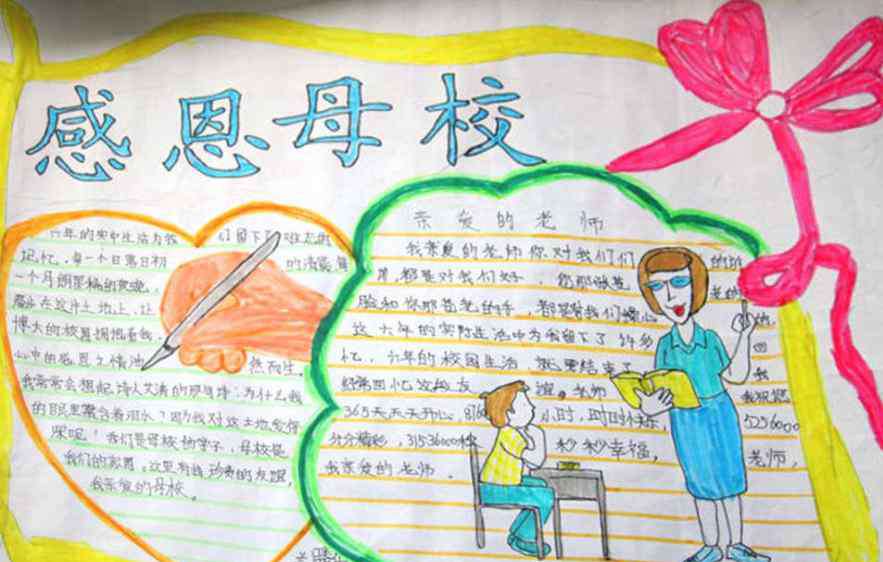 感恩母校
六年的学中生活为我们留下了难忘的
记忆,每一个日常日初的清晨,每
一个月朗星稀的夜晚,
在这片土地上,让
博大的校园拥抱着我,
心中的感恩之情油然而生。
我常常会想起诗人艾青的那句诗:为什么我
的眼里常含着泪水?因为我对这土地爱得
深呢!我们是母校的学子,母校是
我们的家园,这里有我珍贵的友谊,
我亲爱的母校。
亲爱的老师
我亲爱的老师你对我们们的
都是对我们好,您那
脸和你那苍老的手,都是替我们
这六年的学习生活中为我留下了许多回
忆,六年的校园生活就要结束了我
经常回忆这份友谊。老师我祝您
365天天天开心,8760小时,时时快乐,5256000
分分精彩,31536000秒秒秒幸福,老师,
我亲爱的老师。